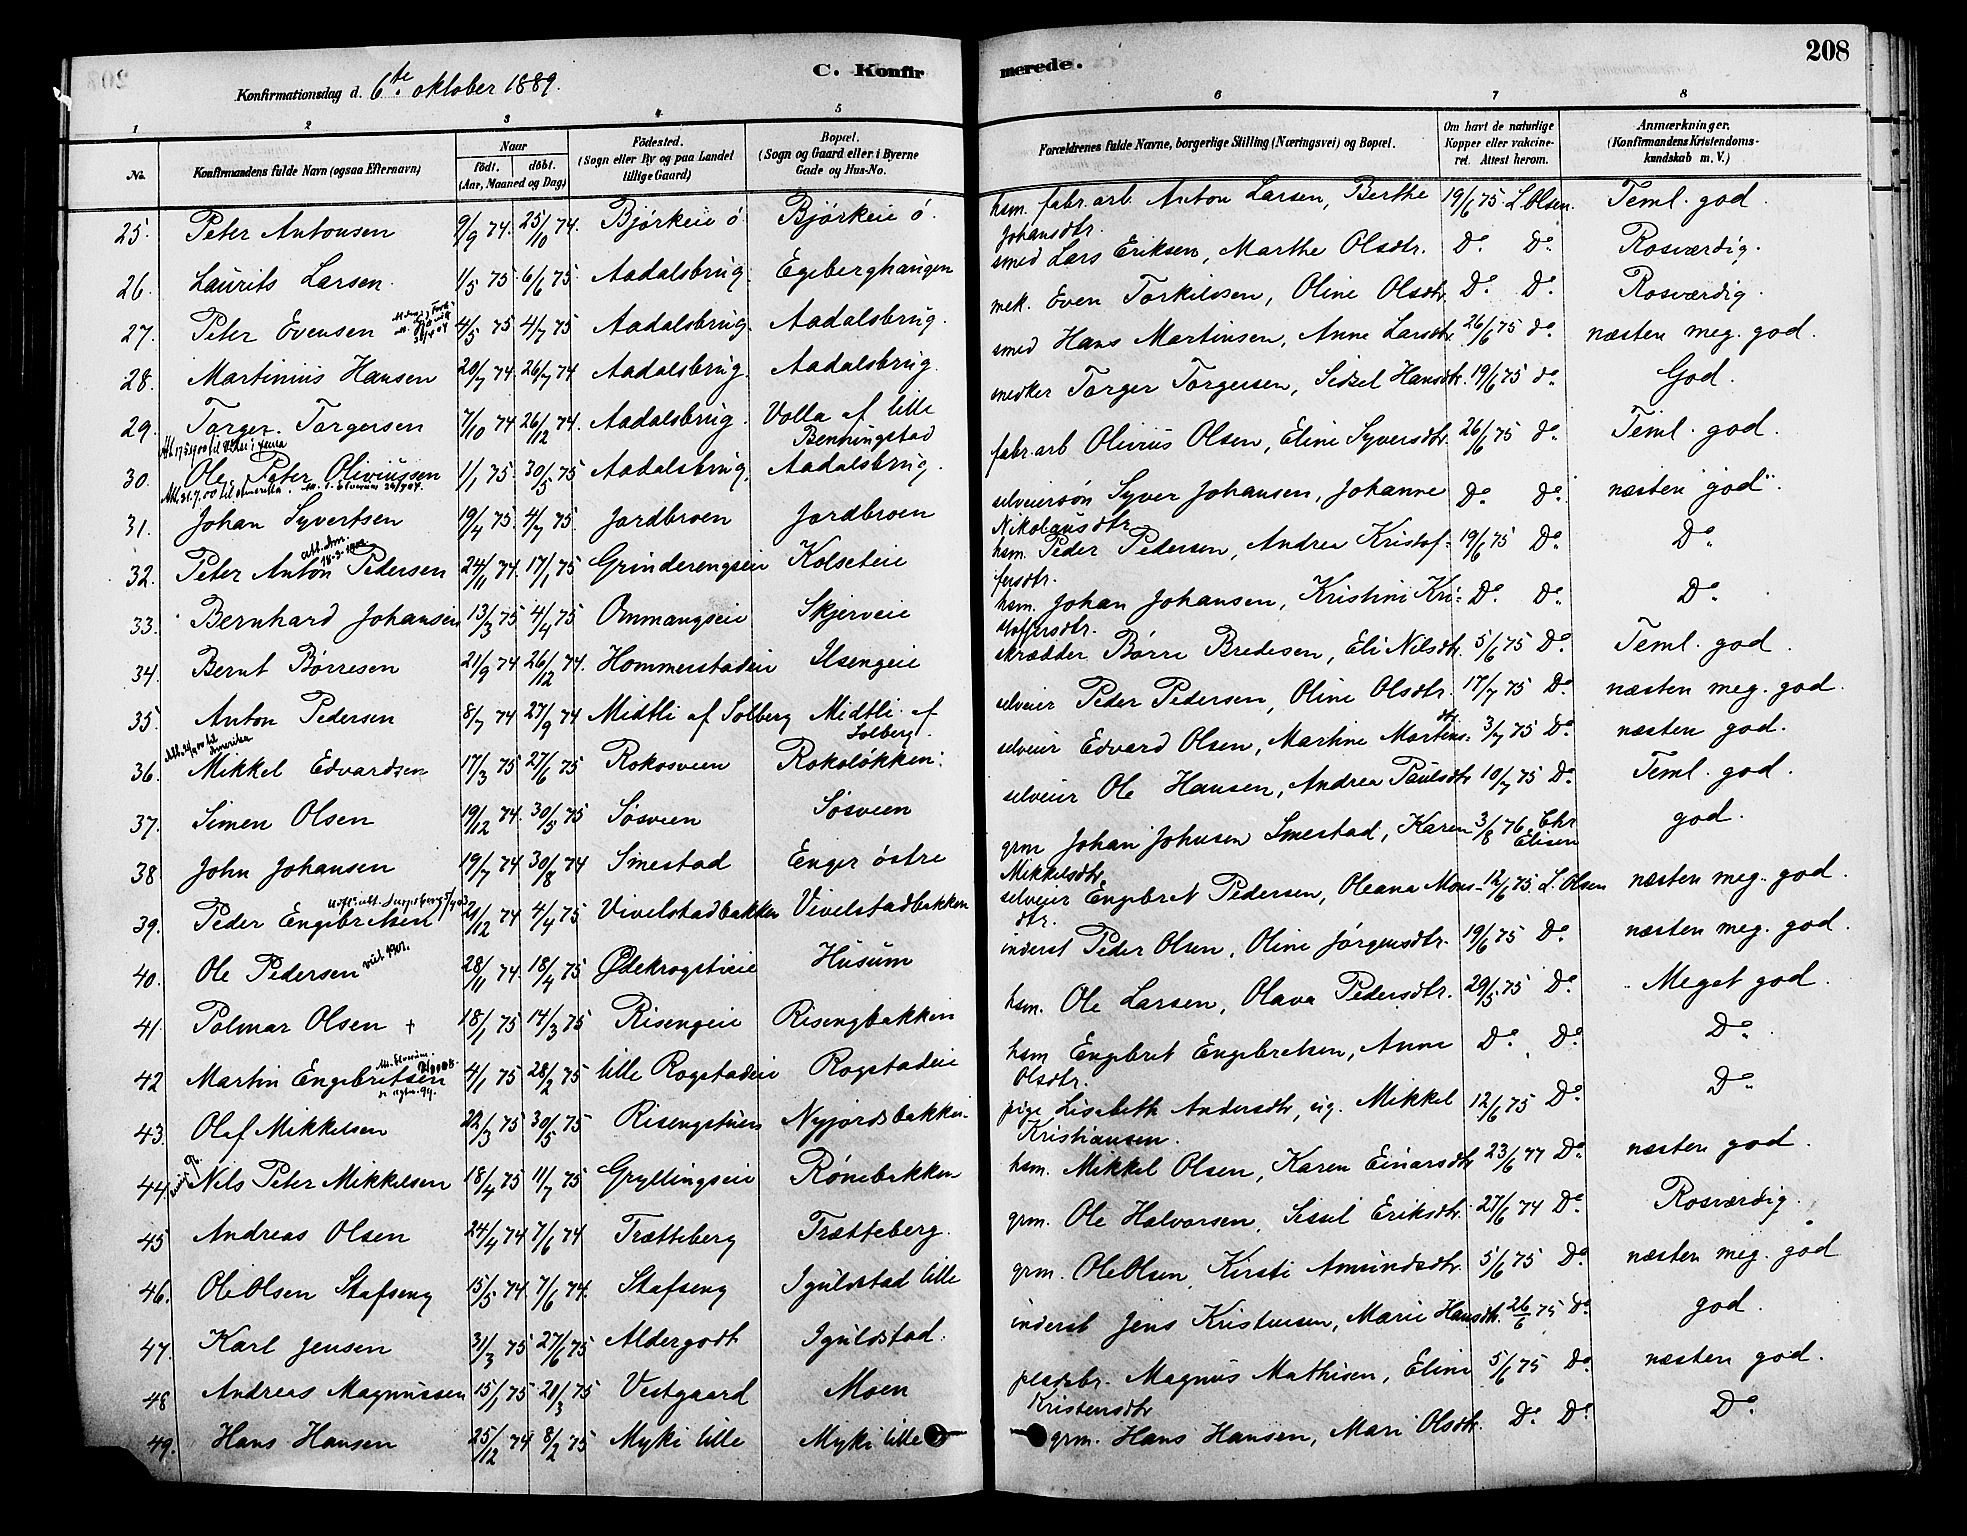 208
C. Konfirmerede.
Konfirmationsdag d. 6te oktober 1889.
1 2 3 4 5 6 7 8
No. Konfirmandens fulde Navn (ogsaa Efternavn) Naar Födt. döbt. (Aar, Maaned og Dag) Födested. (Sogn eller By og paa Landet tillige Gaard) Bopæl. (Sogn og Gaard eller i Byerne Gade og Hus-No. Forældrenes fulde Navne, borgerlige Stilling (Næringsvei) og Bopæl. Om havt de naturlige Kopper eller vakcineret. Attest herom. Anmærkninger. (Konfirmandens Kristendomskundskab m. V.)
25. Peter Antonsen 9/9 74. 25/10 74. Bjørkeie ø. Bjørkeie ø. hsm. fabr. arb. Anton Larsen, Berthe Johansdtr. 19/6 75. L. Olsen. Teml. god.
26. Laurits Larsen. 1/5 75 6/6 75. Aadalsbrug. Egeberghaugen smed Lars Eriksen, Marthe Olsdtr. Do. Do. Rosværdig.
27. Peter Evensen 4/5 75 4/7 75 Aadalsbrug. Aadalsbrug. mek. Even Torkildsen, Oline Olsdtr. Do. Do. Rosværdig.
28. Martinius Hansen 20/7 74. 26/7 74 Aadalsbrug. Aadalsbrug. smed Hans Martinsen, Anne Larsdtr. 26/6 75 do. næsten meg. god.
29. Torger Torgersen 7/10 74 26/12 74. Aadalsbrug. Volla af lille Benningstad snedker Torger Torgersen, Sidsel Hansdtr. 19/6 75 do. God.
30. Ole Peter Oliviussen 1/1 75. 30/5 75 Aadalsbrug. Aadalsbrug. fabr. arb Olivius Olsen, Eline Syversdtr. 26/6 75 do. Teml. god.
31. Johan Syvertsen 19/4 75. 4/7 75. Jordbroen Jordbroen selveiersøn Syver Johansen, Johanne Nikolausdtr. Do. Do. næsten god.
32. Peter Anton Pedersen 24/11 74. 17/1 75 Grinderengseie Kolseteie hsm. Peder Pedersen, Andrea Kristofersdtr. 19/6 75 Do. Do.
33. Bernhard Johansen 13/3 75 4/4 75 Ommangseie Skjerveie hsm. Johan Johansen, Kristine Kristofersdtr. Do. Do. Do.
34. Bernt Børresen 21/9 74 26/12 74. Hommerstadeie Ilsengeie skrædder Børre Bredesen, Eli Nilsdtr. 5/6 75 Do. Teml. god.
35. Anton Pedersen 8/7 74 27/9 74 Midtli af Solberg Midtli af Solberg. selveier Peder Pedersen, Oline Olsdtr. 17/7 75 Do. næsten meg. god.
36. Mikkel Edvardsen 17/3 75 27/6 75 Rokosveen Rokoløkken. selveier Edvard Olsen, Martine Martinsdtr 3/7 75 Do. næsten god.
37. Simen Olsen 19/12 74. 30/5 75 Søsveen Søsveen selveier Ole Hansen, Andrea Paulsdtr 10/7 75 Do. Teml. god.
38 John Johansen 19/7 74 30/8 74 Smestad Enger østre grm Johan Johnsen Smestad, Karen Mikkelsdtr. 3/8 76. Chr Elisen god.
39. Peder Engebretsen 21/12 74 4/4 75 Vivelstadbakken Vivelstadbakken selveier Engebret Pedersen, Oleana Monsdtr. 12/6 75. L. Olsen næsten meg. god.
40. Ole Pedersen 28/11 74. 18/4 75 Ødekrogstieie Husum inderst Peder Olsen, Oline Jørgensdtr. 19/6 75 Do. næsten meg. god.
41. Polmar Olsen + 18/1 75 14/3 75 Risengeie Risengbakken hsm. Ole Larsen, Olava Pedersdtr. 29/5 75 Do. Meget god.
42 Martin Engebretsen 4/1 75 28/2 75 lille Rogstadeie Rogstadeie hsm Engebret Engebretsen, Anne Olsdtr. Do. Do. Do.
43. Olaf Mikkelsen 22/3 75 30/5 75 Risengstuen Nyjordsbakken pige Lisabeth Andersdtr, ug. Mikkel Kristiansen. 12/6 75 Do. Do.
44. Nils Peter Mikkelsen 18/4 75 11/7 75 Gryllingseie Rønebakken hsm. Mikkel Olsen, Karen Einarsdtr 23/6 77 Do. næsten god.
45 Andreas Olsen 24/4 74 7/6 74 Trætteberg Trætteberg. grm. Ole Halvorsen, Sissel Eriksdtr. 27/6 74 Do. Rosværdig.
46. Ole Olsen Stafseng 15/5 74. 7/6 74. Stafseng Iguldstad lille grm. Ole Olsen, Kirsti Amundsdtr 5/6 75 Do. næsten meg. god
47. Karl Jensen 31/3 75 27/6 75 Aldergodt Iguldstad. inderst Jens Kristensen, Marie Hansdtr. 26/6 75 Do. god.
48 Andreas Magnussen 15/1 75 28/3 75 Vestgaard Moen pladsbr. Magnus Mathisen, Eline Kristensdtr 5/6 75 Do. næsten god.
49. Hans Hansen 25/12 74 8/2 75 Myki lille Myki lille grm. Hans Hansen, Mari Olsdtr. Do. Do. Do.